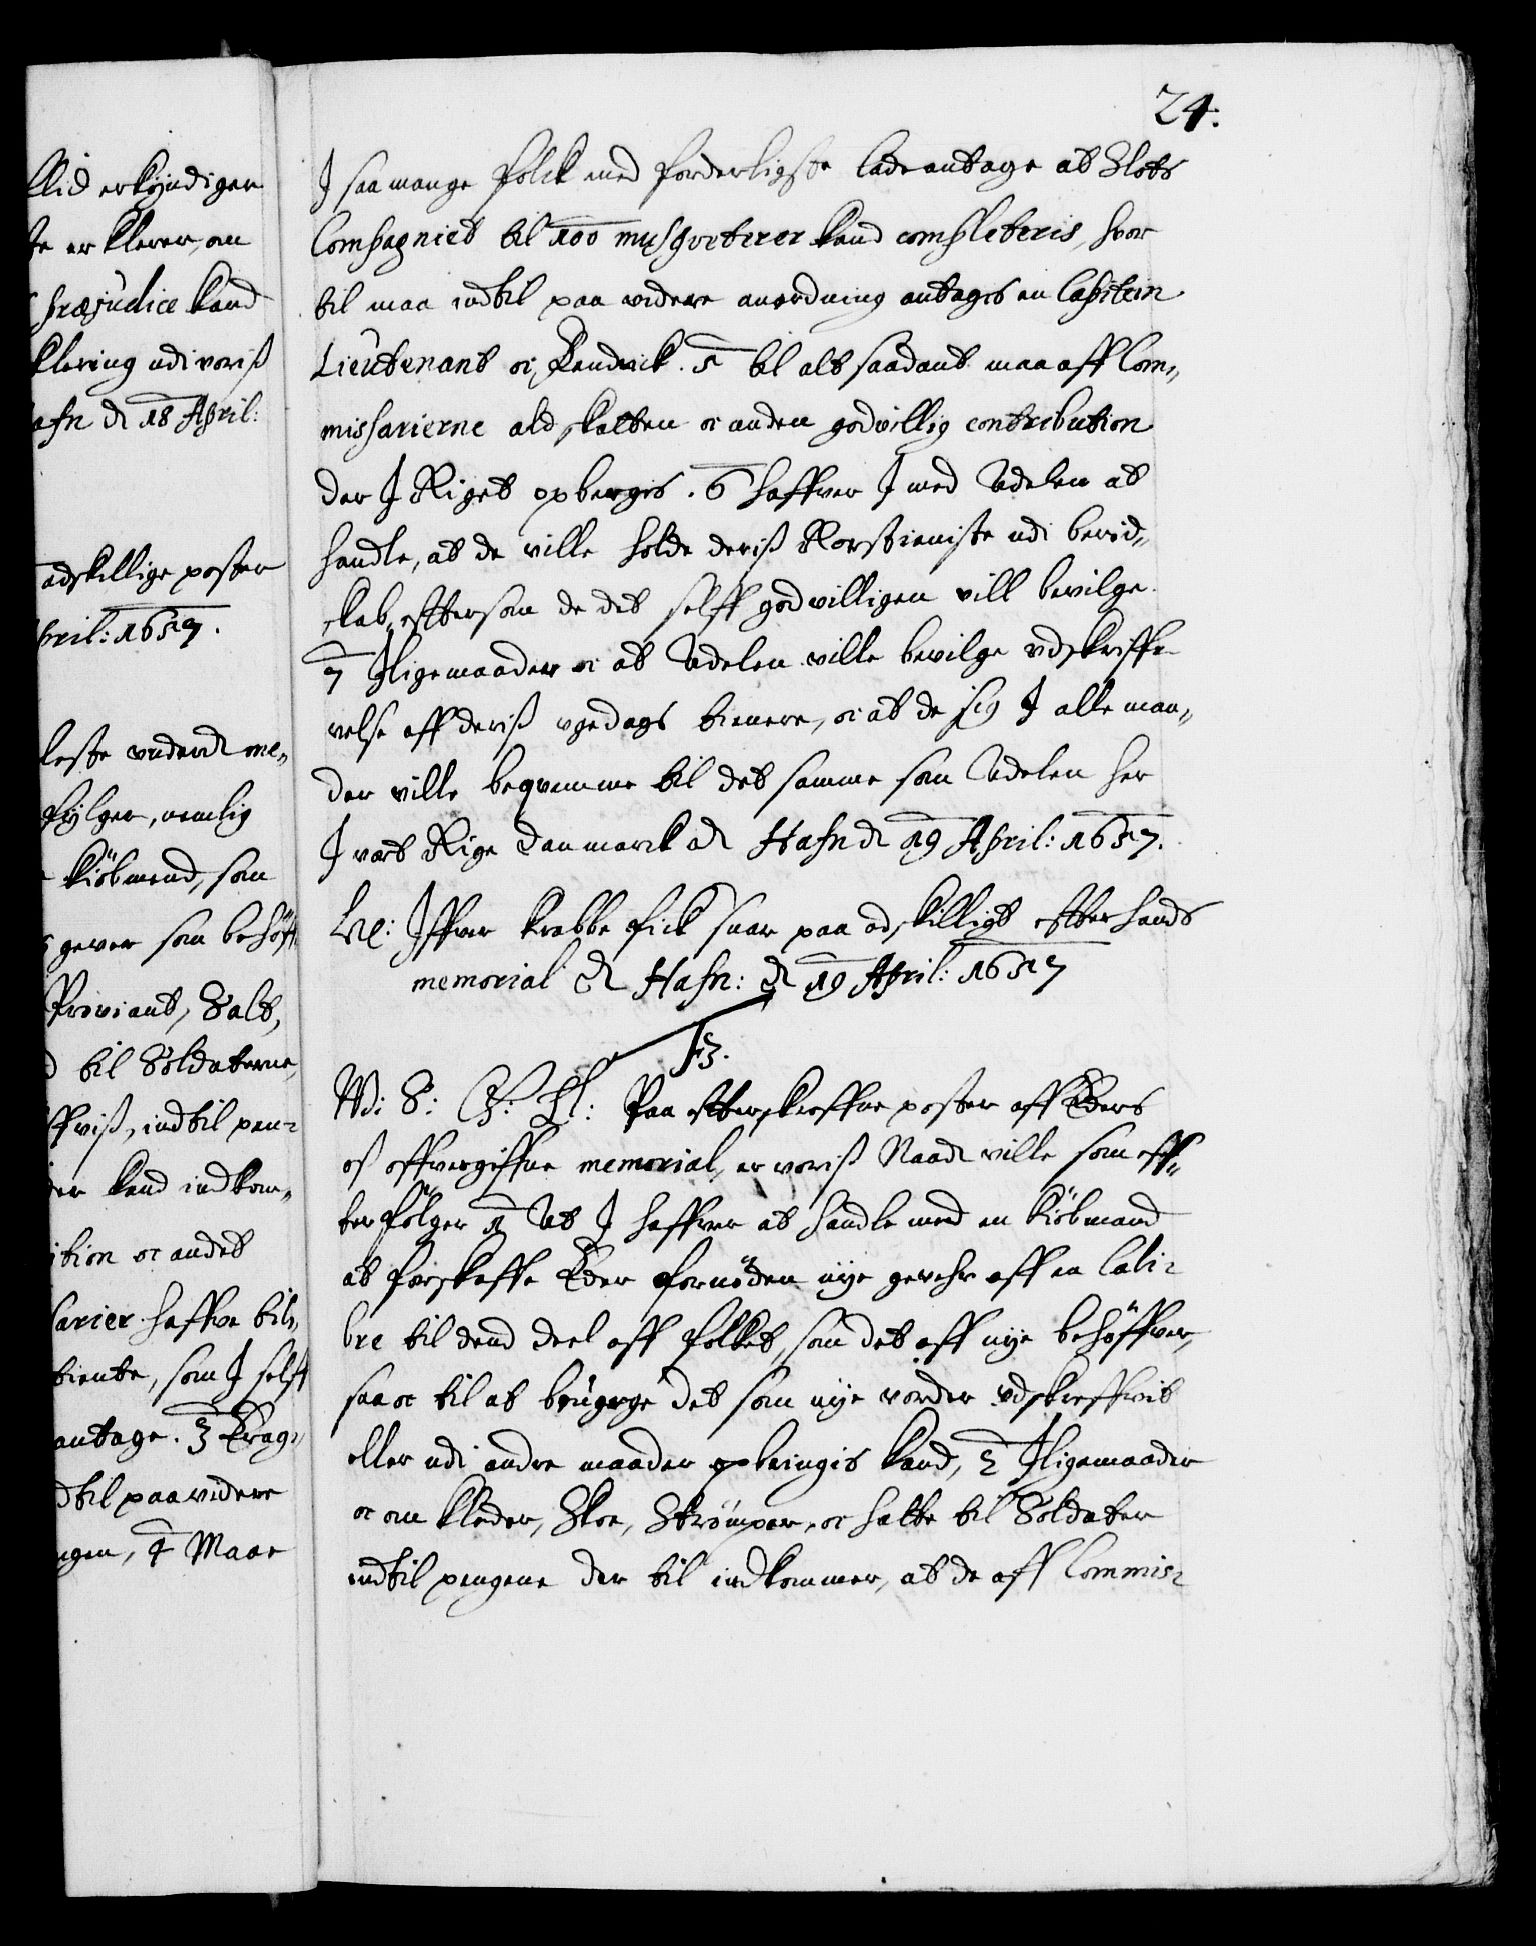 24.
llid erkyndiger
te er klerer, om
præjudice kand
klering udi voris
afn d 18 April:
adskillige poster
pril: 1657.
leste underd me„
fylger, nemlig
kiöbmend, som
gever som behöff
Proviant, Salt,
d til Soldaterne,
ffvis, indtil pen„
der kand indkom„
ition oc andet
sarier haffve bil„
tiente, som J self
antage. 3 Krag„
dtil paa videre
ngen, 4 Maa
J saa mange folck med forderligste lade antage at Slots
Compagniet til 100 musqveterer kand completeris, hvor
til maa indtil paa videre anordning antages en Capitein
Lieutenant oc Fendrick. 5 til alt saadant maa aff Com„
missarierne ald skatten oc anden godvillig contribution
der J Riget opbergis. 6 haffver J med Adelen at
handle, at de ville holde deris Rorstieniste udi bered„
skab, efftersom de det self godvilligen vill bevilge.
7 Jligemaader oc at Adelen ville bevilge udskriffe„
velse aff deris ugedags tienere, oc at de sig J alle maa„
der ville beqvemme til det samme som Adelen her
J vort Rige Danmarck ad Hafn d 19 April: 1657.
Hr: Jffver Krabbe fick svar paa adskilligt efter hands
memorial Ad Hafn: d 19 April: 1657
F3.
Wi: S: G: H: Paa effterskreffne poster aff Eders
os offvergiffne memorial, er voris Naad: ville som eff„
terfölger 1 At J haffver at handle med en kiöbmand
at forskaffe Eder fornöden nye gevehr aff en Cali„
bre til dend deel aff folket, som det aff nye behöffver,
saa oc til at bruge det som nye vorder udskreffvit
eller udi andre maader opbringis kand, 2 Jligemaader
oc om kleder, Skoe, Strømper, oc hatte til Soldater
indtil pengene der til indkommer, at de aff Commis„